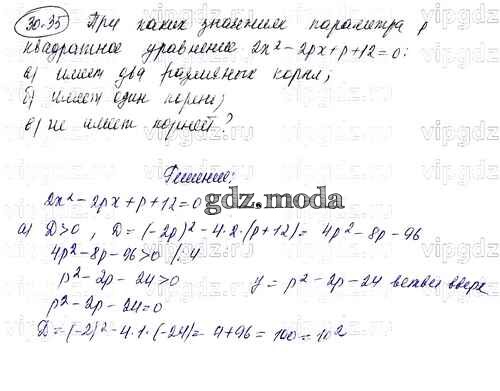 30.35 При каких значениях параметра p
квадратное уравнение 2x² - 2px + p + 12 = 0:
а) имеет два различных корня;
б) имеет один корень;
в) не имеет корней?
Решение:
2x² - 2px + p + 12 = 0
gdz.moda
а) D>0, D = (-2p)² - 4·2·(p+12) = 4p² - 8p - 96
4p² - 8p - 96 > 0 /:4
p² - 2p - 24 > 0 y = p² - 2p - 24 ветви вверх
p² - 2p - 24 = 0
D = (-2)² - 4·1·(-24) = 4 + 96 = 100 = 10²
vipgdz